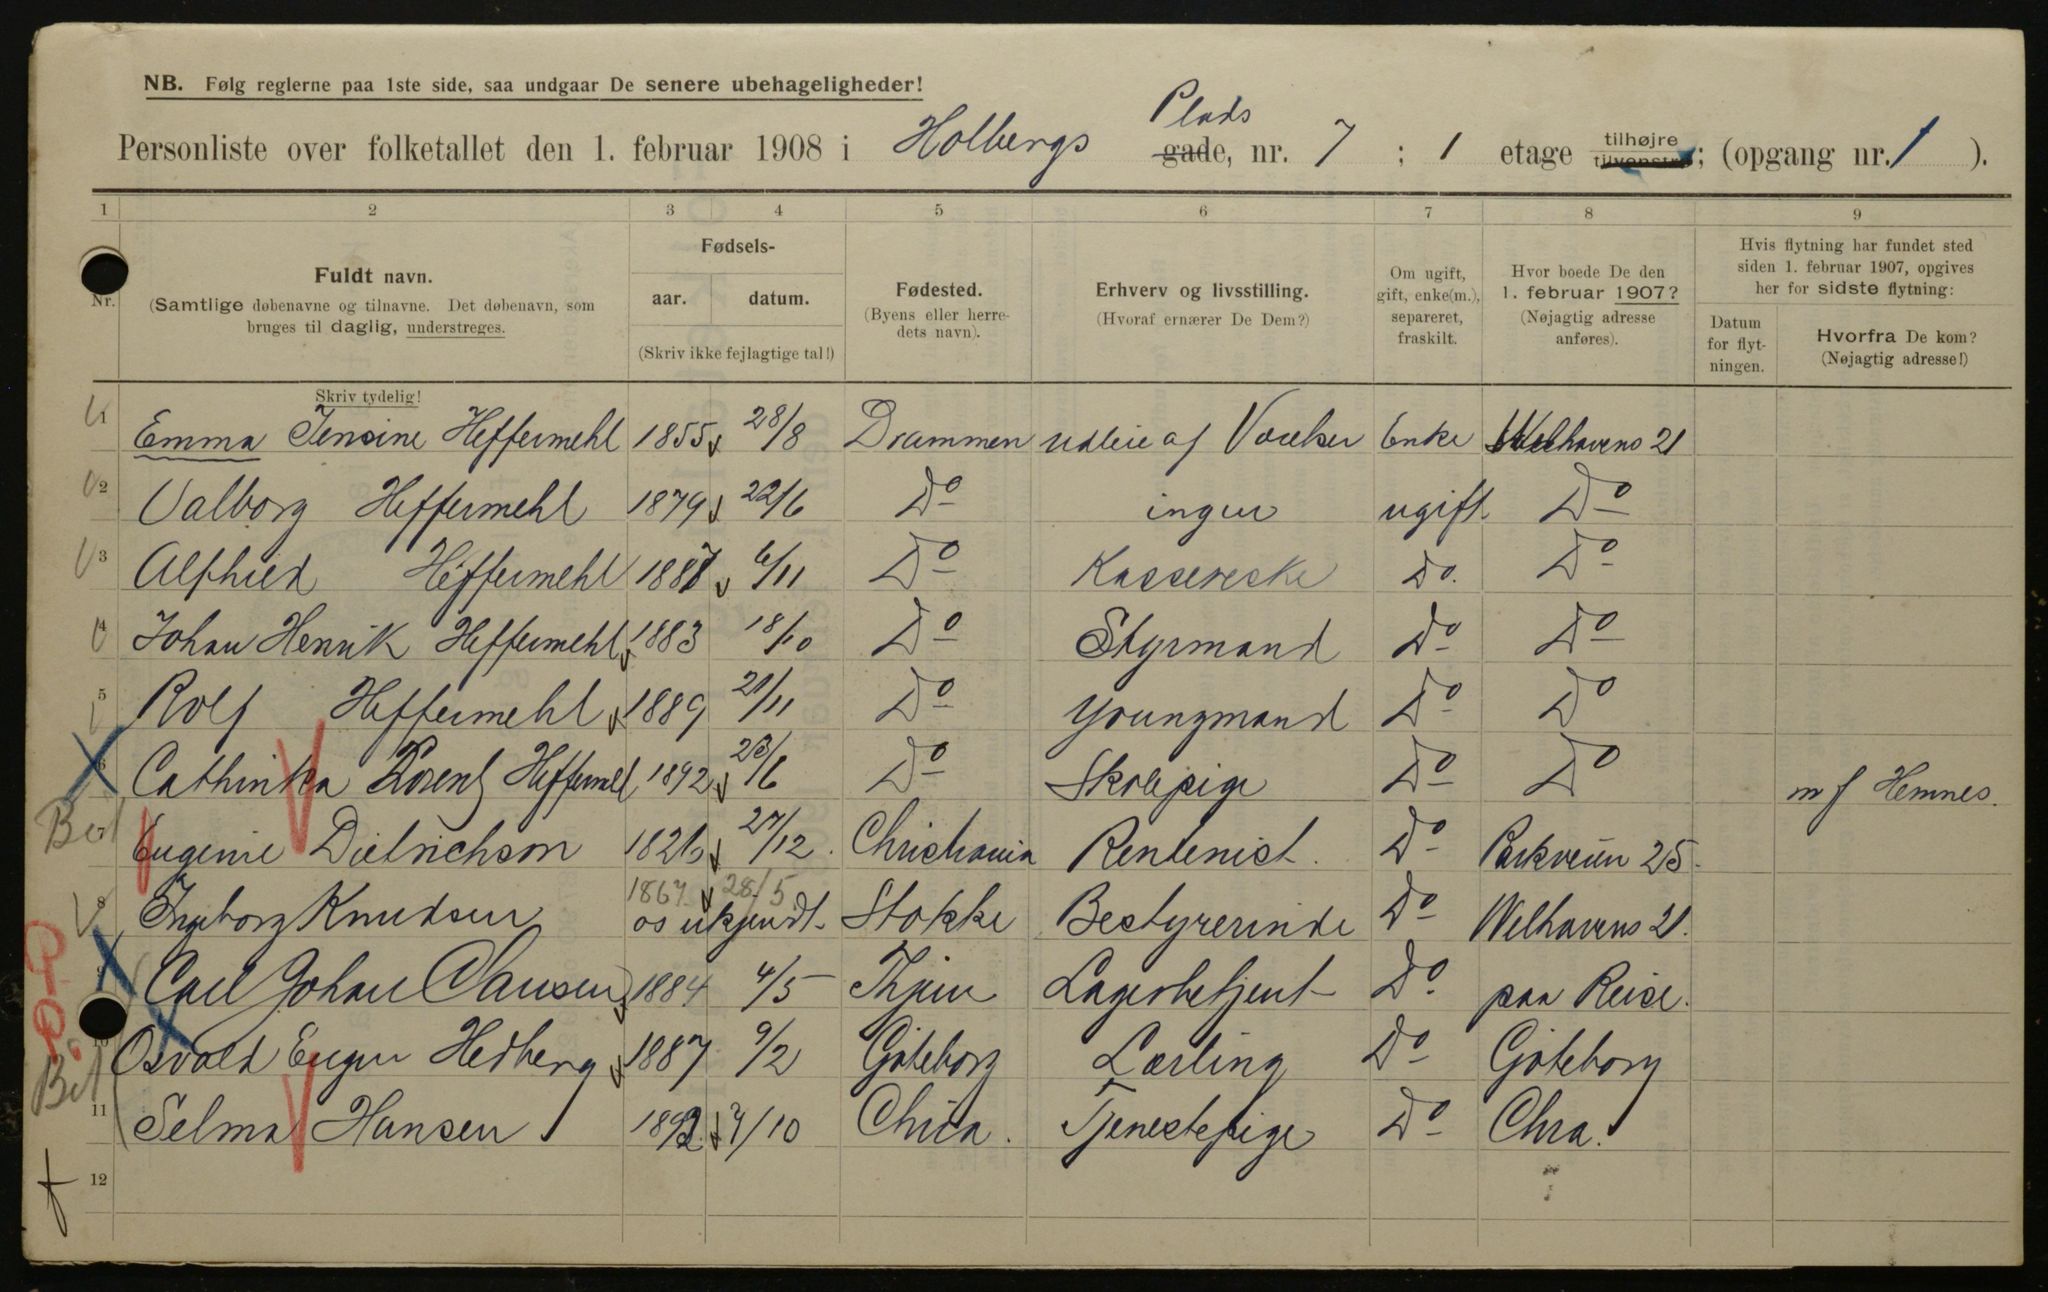 NB. Følg reglerne paa 1ste side, saa undgaar De senere ubehageligheder!
Personliste over folketallet den 1. februar 1908 i Holbergs gade, Plads nr. 7 ; 1 etage tilhøjre tilvenstre; (opgang nr. 1 ).
1 2 3 4 5 6 7 8 9
Nr.
Fuldt navn.
(Samtlige døbenavne og tilnavne. Det døbenavn, som
bruges til daglig, understreges.
Skriv tydelig!
Fødsels-
aar. datum.
(Skriv ikke fejlagtige tal!)
Fødested.
(Byens eller herre-
dets navn).
Erhverv og livsstilling.
(Hvoraf ernærer De Dem?)
Om ugift,
gift, enke(m.),
separeret,
fraskilt.
Hvor boede De den
1. februar 1907?
(Nøjagtig adresse
anføres).
Hvis flytning har fundet sted
siden 1. februar 1907, opgives
her for sidste flytning:
Datum
for flyt-
ningen.
Hvorfra De kom?
(Nøjagtig adresse!)
1 Emma Jensine Heffermehl 1855 28/8 Drammen udleie af Værelser Enke Welhavens 21
2 Valborg Heffermehl 1879 22/6 Do ingen ugift. Do
3 Alfhied Heffermehl 1887 6/11 Do Kassereske Do. Do
4 Johan Henrik Heffermehl 1883 18/10 Do Styrmand Do Do
5 Rolf Heffermehl 1889 21/11 Do Youngmand Do Do
6 Cathinka Heffermehl 1892 23/6 Do Skolepige Do Do m f Hemnes.
7 Eugenie Dietrichson 1826 27/12. Christiania Rentenist. Do Parkveien 25.
8 Ingeborg Knudsen 1867 28/5. os ukjendt Stokke Bestyrerinde Do Welhavens 21.
9 Carl Johan Clausen 1884 4/5 Thjem Lagerbetjent Do paa Reise.
10 Osvald Eugen Hedberg 1887 9/2 Göteborg Lærling Do Göteborg
11 Selma Hansen 1892 7/10 Chria. Tjenestepige Do Chra.
12